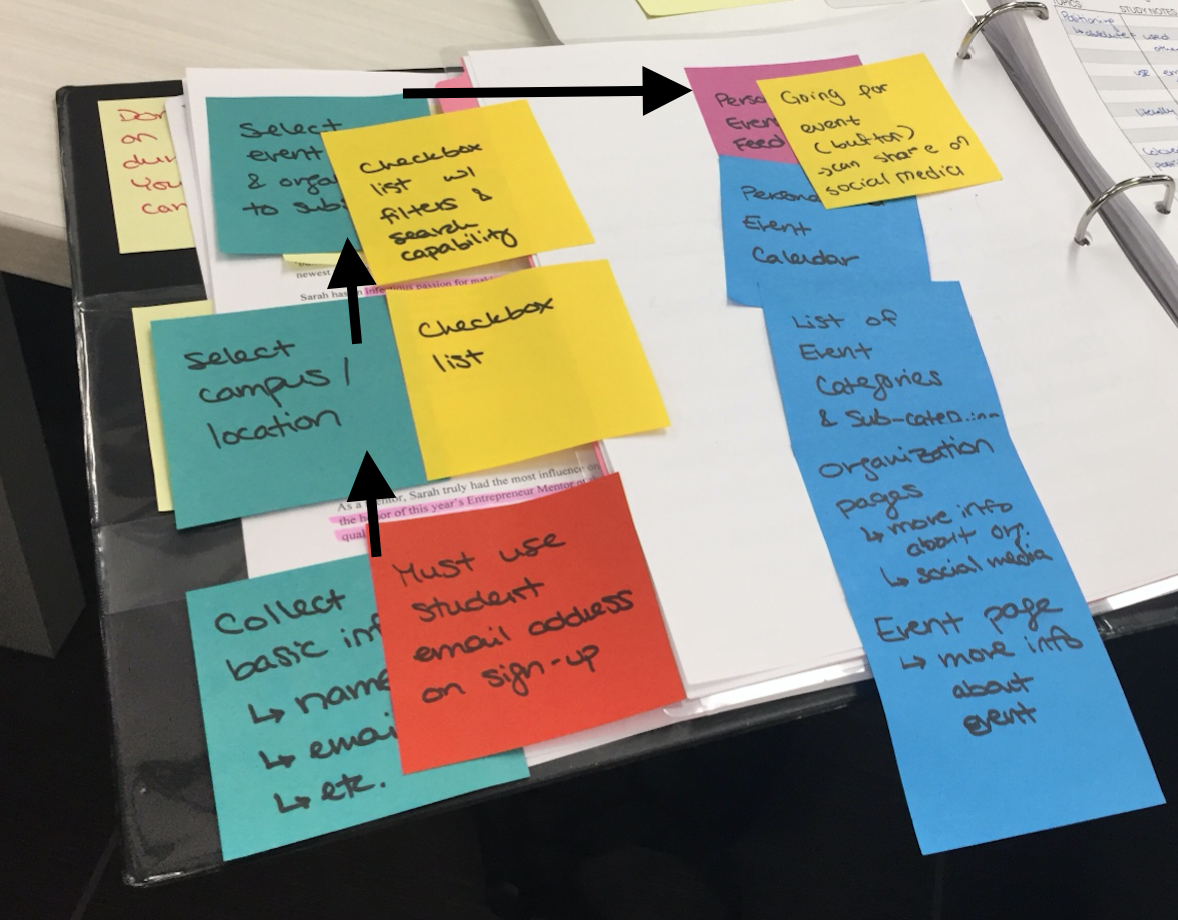 on
You
can
Select
event
& orga
to subs
Checkbox
list w/
filters &
search
capability
newest
Sarah has an infectious passion for
Select
campus /
location
Checkbox
list
As a mentor, Sarah truly had the most influence on
the honor of this year's Entrepreneur Mentor of
Collect
basic inf
↳ name
↳ emai
↳ etc.
Must use
student
email address
on sign-up
Perso
Even
Feed
Going for
event
(button)
→ can share on
social media
Persona
Event
Calendar
List of
Event
Categories
& Sub-categ
organization
pages
↳ more info
about org.
↳ social media
Event page
↳ more info
about
event
STUDY NOTES
Positioning
used